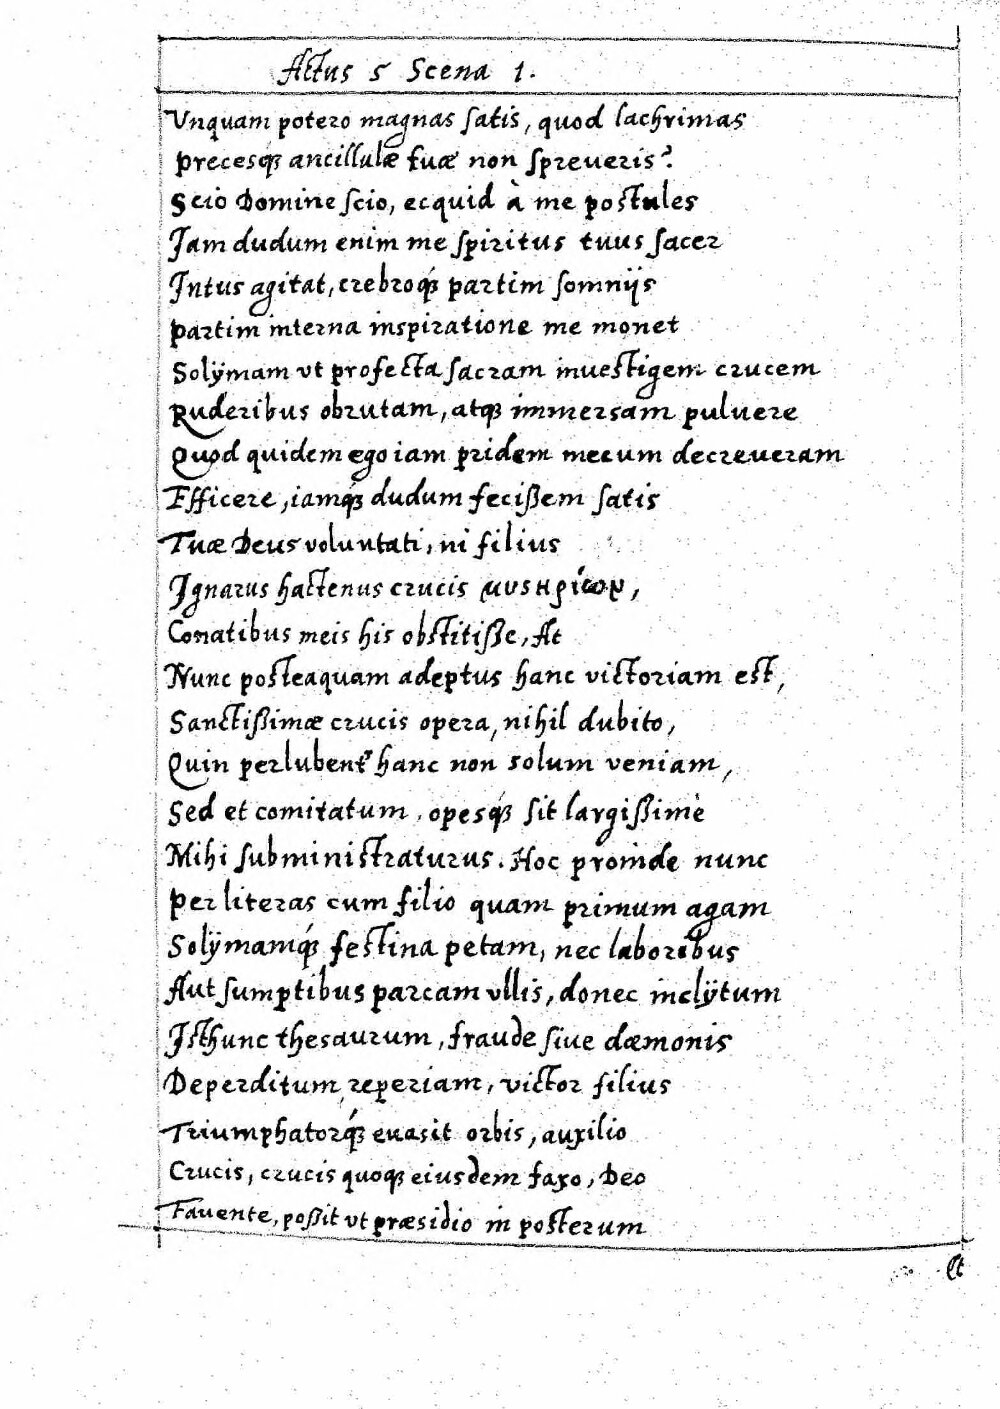 Actus 5 Scena 1.
Vnquam potero magnas satis, quod lachrimas
Precesq́; ancillulæ tuæ non spreueris?
Scio Domine scio, ecquid à me postules
Jam dudum enim me spiritus tuus sacer
Jntus agitat, crebroq́; partim somnijs
Partim interna inspiratione me monet
Solÿmam vt profecta sacram inuestigem crucem
Ruderibus obrutam, atq; immersam puluere
Quod quidem ego iam pridem mecum decreueram
Efficere, iamq́; dudum fecißem satis
Tuæ Deus voluntati, ni filius
Jgnarus hactenus crucis μυσηρίων,
Conatibus meis his obstitiße, At
Nunc posteaquam adeptus hanc victoriam est,
Sanctißimæ crucis opera, nihil dubito,
Quin perlubent' hanc non solum veniam,
Sed et comitatum, opesq́; sit largißimè
Mihi subministraturus. Hoc proinde nunc
Per literas cum filio quam primum agam
Solÿmamq́; festina petam, nec laboribus
Aut sumptibus parcam vllis, donec inclÿtum
Jsthunc thesaurum, fraude siue dæmonis
Deperditum reperiam, victor filius
Triumphatorq́; euasit orbis, auxilio
Crucis, crucis quoq; eiusdem faxo, Deo
Fauente, poßit vt præsidio in posterum
Et